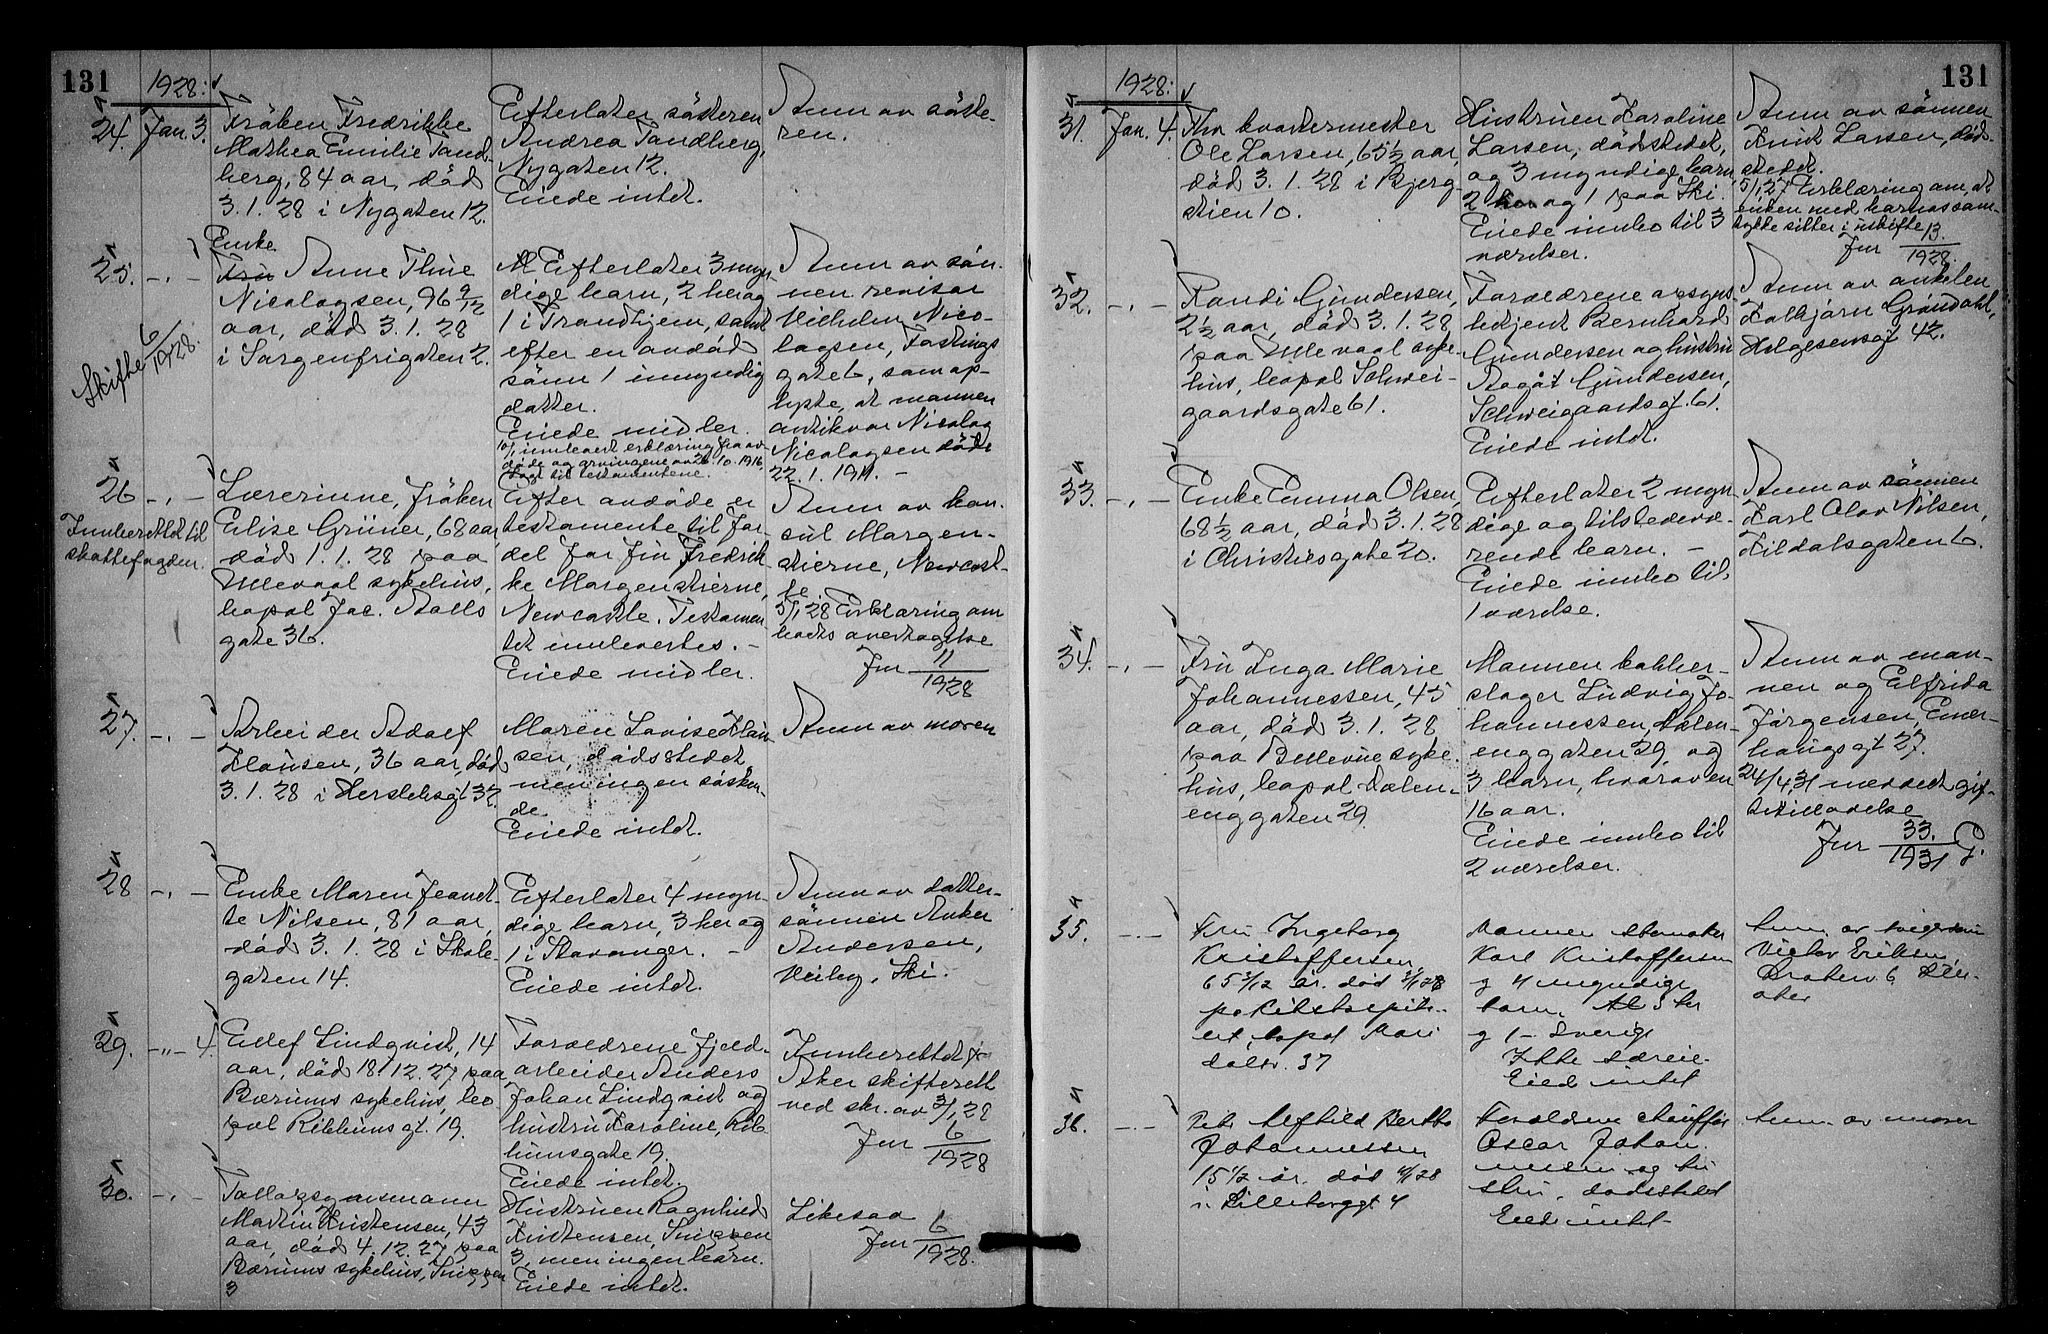 131
1928:
24. Jan. 3.
Fröken Fredrikke
Mathea Emilie Tand-
berg, 84 aar, död
3.1.28 i Nygaten 12.
Efterlater sösteren
Andrea Tandberg,
Nygaten 12.
Eiede intet.
Anm av söste-
ren.
25. -"-
Enke
Fru Anne Thue
Nicolaysen, 96 9/12
aar, död 3.1.28
i Sorgenfrigaten 2.
Skifte 6/1928.
Efterlater 3 myn-
dige barn, 2 her og
1 i Trondhjem, samt
efter en avdöd
sönn 1 umyndig
datter.
Eiede midler.
10/1 innlevert erklæring fra av-
döde og arvingene av 26.10.1916,
lagt til testamentene.
Anm av sön-
nen revisor
Vilhelm Nico-
laysen, Fastings
gate 6, som op-
lyste, at mannen
antikvar Nicolay
Nicolaysen döde
22.1.1911. -
26 -"-
Innberettet til
skattefogden.
Lærerinne, fröken
Elise Grüner, 68 aar,
död 1.1.28 paa
Ullevaal sykehus,
bopal Jac. Aalls
gate 36.
Efter avdöde er
testamente til for-
del for Fru Fredrik-
ke Morgenstierne,
Newcastle. Testamen-
tet innlevertes. -
Eiede midler.
Anm av kon-
sul Morgen-
stierne, Newcast-
le.
5/1 28 Erklæring om
boets overtagelse
Jnr 11/1928
27. -"-
Arbeider Adolf
Klausen, 36 aar, död
3.1.28 i Herslebsgt 32.
Moren Lovise Klau-
sen, dödsstedet,
men ingen sösken-
de.
Eiede intet.
Anm av moren
28 -"-
Enke Maren Jeanet-
te Nilsen, 81 aar,
död 3.1.28 i Skole-
gaten 14.
Efterlater 4 myn-
dige barn, 3 her og
1 i Stavanger. -
Eiede intet.
Anm av datter-
sönnen Anker
Andersen,
Ski.
29. -"- 4.
Lindqvist, 14
aar, död 18.12.27 paa
Bærums sykehus, bo
pæl Ribhunsgt. 19.
Foreldrene fjeld-
arbeider Anders
Johan Lindqvist og
hustru Karoline, Rib
hunsgate 19.
Eiede intet.
Innberettet fr
Aker skifterett
ved skr. av 3/1 28
Jnr 6/1928
30. -"-
Martin Kristensen, 43
aar, död 4.12.27 paa
Bærums sykehus,
3
Hustruen Ragnhild
Kristensen,
3, men ingen barn.
Eiede intet.
Likesaa
Jnr 6/1928.
131
1928:
31. Jan. 4.
Fhv kvartermester
Ole Larsen, 65 1/2 aar,
död 3.1.28 i Bjerg-
stien 10.
Hustruen Karoline
Larsen, dödsstedet,
og 3 myndige barn,
2 her og 1 paa Ski.
Eiede innbo til 3
værelser.
Anm av sönnen
Larsen, död-
stedet.
5/1 27 Erklæring om, at
enken med barnas sam-
tykke sitter i uskifte
Jnr 13/1928.
32. -"-
Randi Gundersen,
2 1/2 aar, död 3.1.28
paa Ullevaal syke-
hus, bopal Schwei-
gaardsgate 61.
Foreldrene opsyns-
betjent Bernhard
Gundersen og hustru
Aagot Gundersen,
Schweigaardsgt. 61.
Eiede intet.
Anm av onkelen
Torbjörn Gröndahl,
Helgesensgt 42.
33. -"-
Enke Emma Olsen,
68 1/2 aar, död 3.1.28
i Christiesgate 20.
Efterlater 2 myn
dige og tilstedevæ-
rende barn. -
Eiede innbo til
1 værelse.
Anm av sönnen
Karl Olav Nilsen,
Kildalsgaten 6.
34. -"-
Fru Inga Marie
Johannessen, 45
aar, död 3.1.28
paa Bellevue syke-
hus, bopal Dalen-
enggaten 29.
Mannen kobber-
slager Ludvig Jo-
hannessen, Dalen-
enggaten 29, og
3 barn, hvorav en
16 aar.
Eiede innbo til
2 værelser.
Anm av man-
nen og Elfrida
Jörgensen, Ener-
haugsgt 27.
24/4 31 meddelt gif-
tetillatelse
Jnr 33/1931
35. -"-
Fru Ingeborg
Kristoffersen
65 2/12 år. död 3/1 28
på Rikshospita-
let, bopel Mari
dalsv. 37
Mannen
Karl Kristoffersen
og 4 myndige
barn. 3 her
og 1 - Sverige
Ikke særeie.
Eied intet
Anm. av svigersönn
Victor Eriksen,
36. -"-
Alfhild Berthe
Johannessen
15 1/2 år. död 4/1 28
i Lilleborggt 4
Foreldrene chaufför
Oscar Johan
nessen og hu
stru, dödsstedet
Eiede intet
Anm. av moren